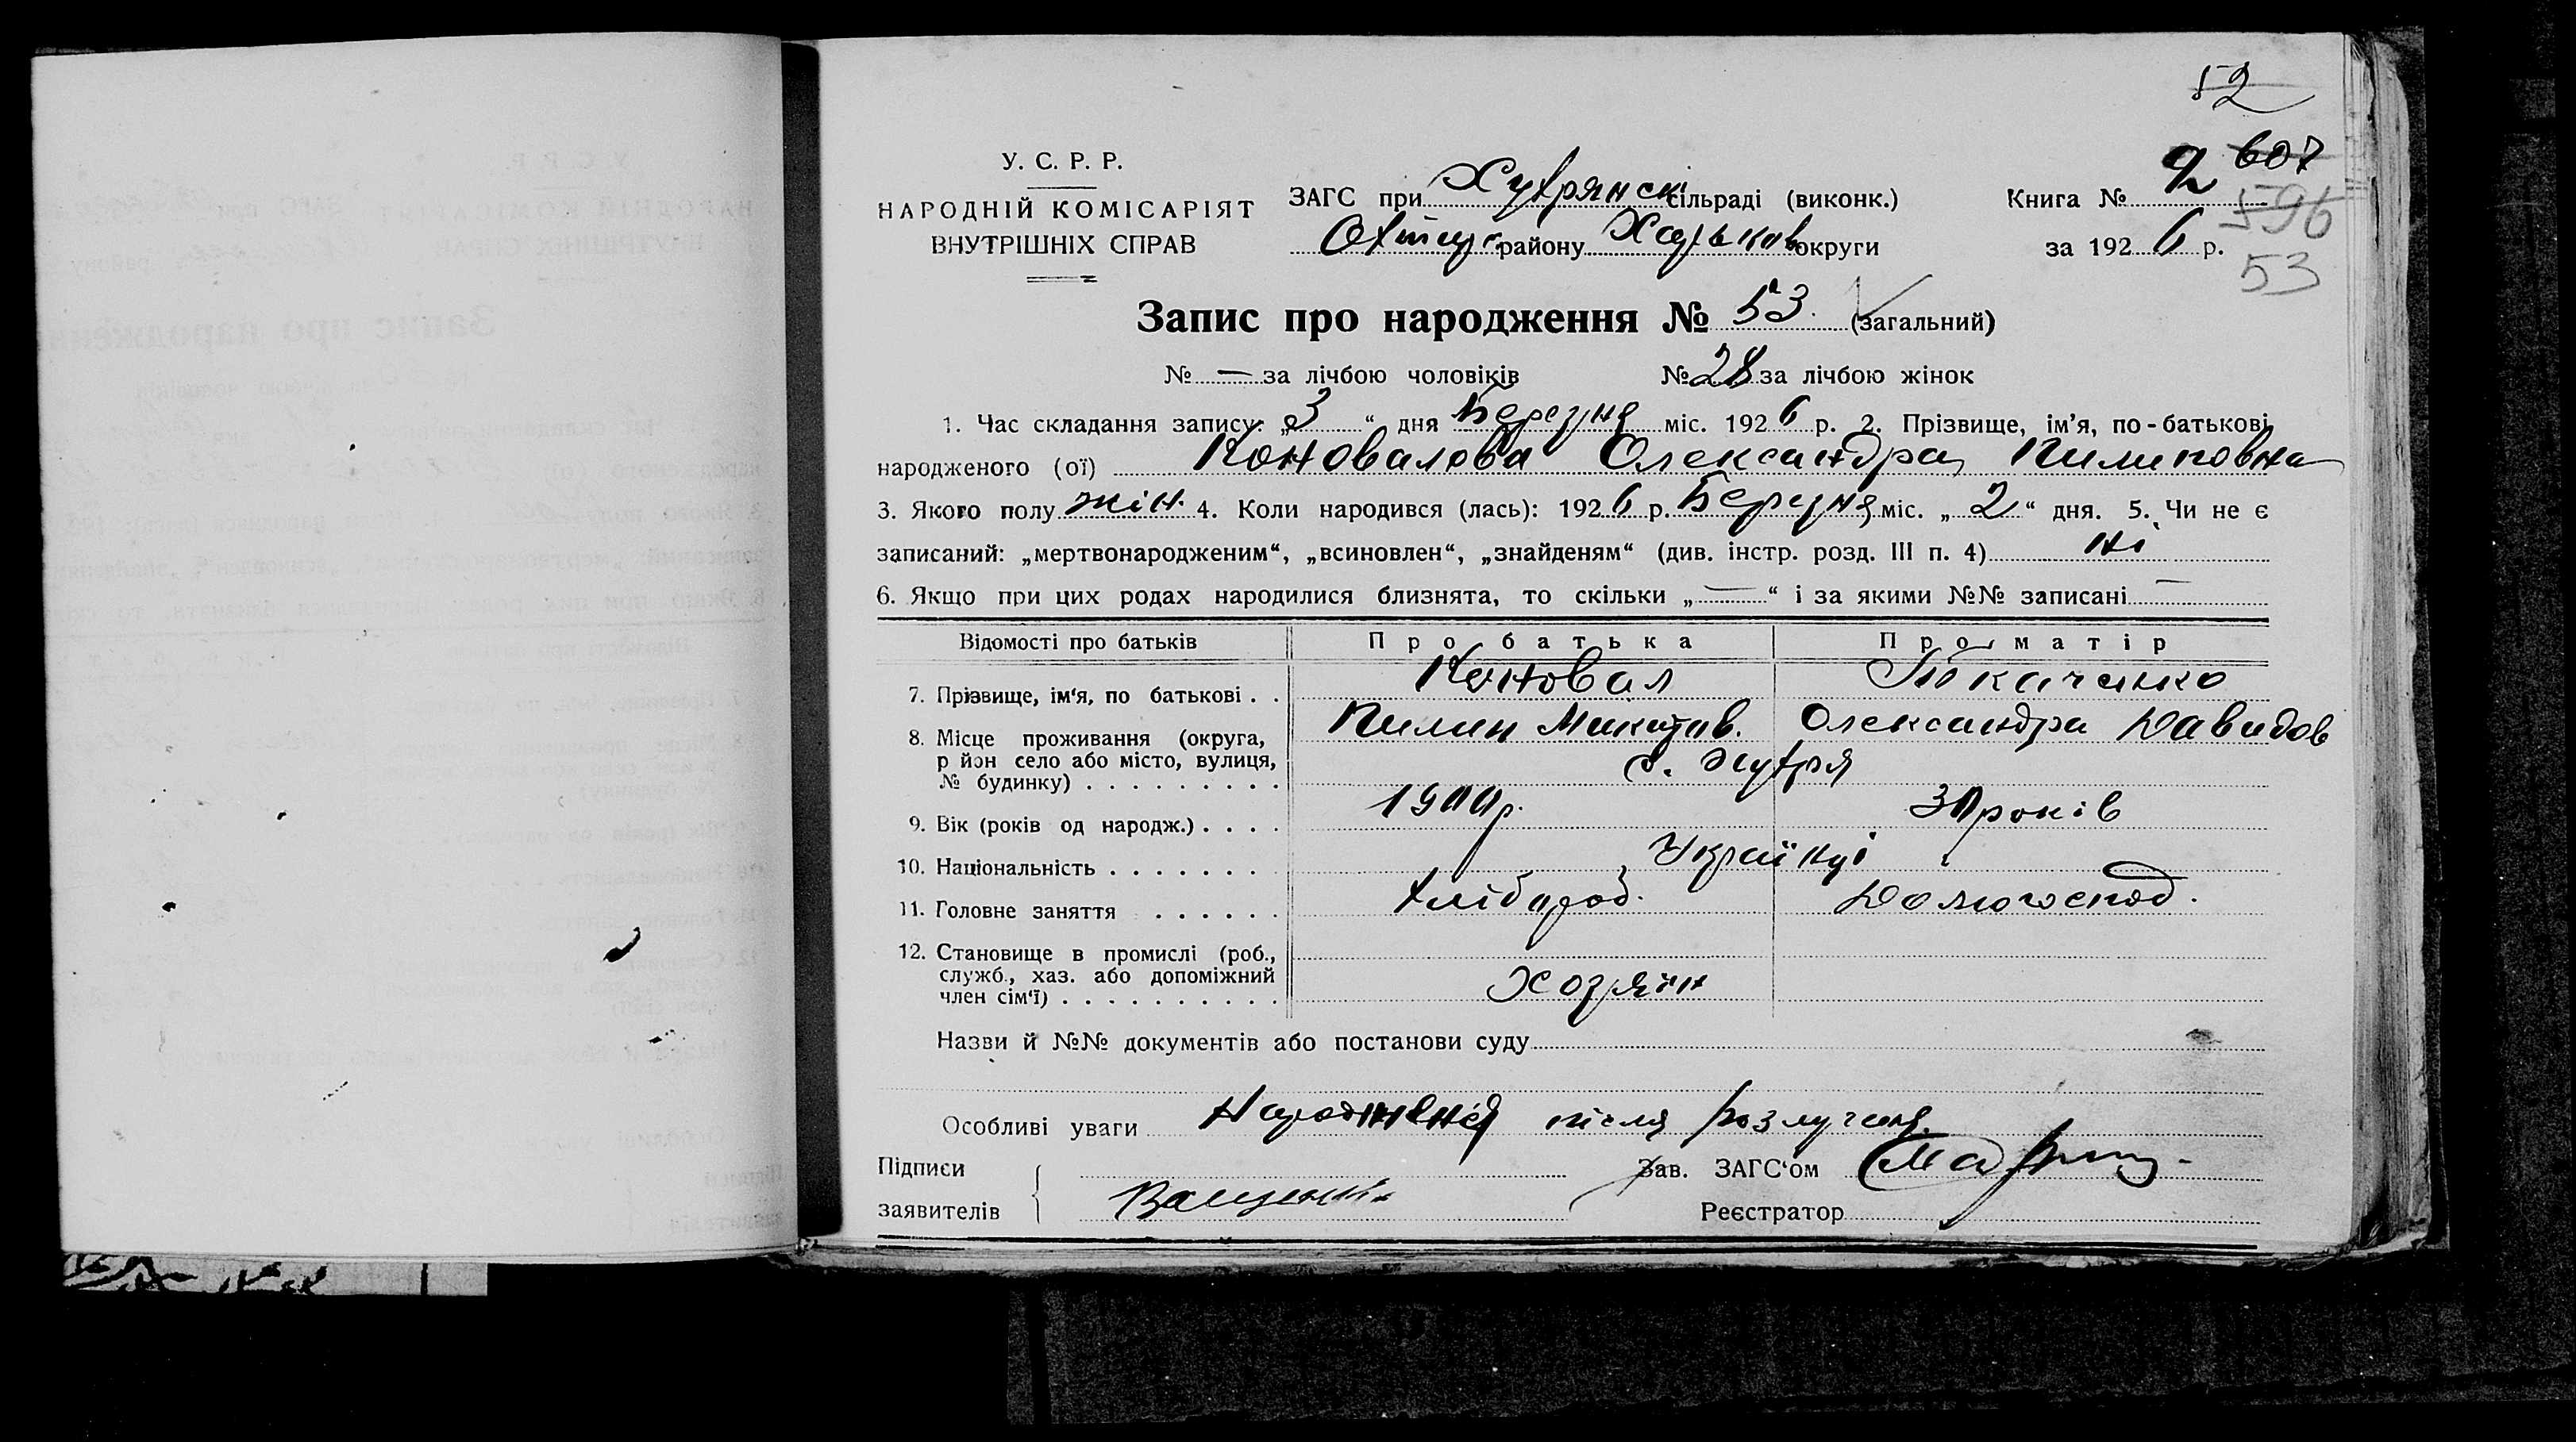 52
У. С. Р. Р.
НАРОДНІЙ КОМІСАРІЯТ
ВНУТРІШНІХ СПРАВ
ЗАГС при Хухрянск сільраді (виконк.)
Охтир. району Харьков округи
Книга № 2 607
596
за 1926 р.
53
Запис про народження № 53. (загальний)
№ — за лічбою чоловіків № 28 за лічбою жінок
1. Час складання запису: „3“ дня Березня міс. 1926 р. 2. Прізвище, ім'я, по-батькові
народженого (ої) Коновалова Олександра Пилиповна
3. Якого полу жін. 4. Коли народився (лась): 1926 р. Березня міс. „2“ дня. 5. Чи не є
записаний: „мертвонародженим“, „всиновлен“, „знайденям“ (див. інстр. розд. III п. 4) Ні
6. Якщо при цих родах народилися близнята, то скільки „—“ і за якими №№ записані —
Відомості про батьків Про батька Про матір
7. Прізвище, ім'я, по батькові . . Коновал Ткаченко
Пилип Микитов. Олександра Давидов
8. Місце проживання (округа,
р йон село або місто, вулиця,
№ будинку) . . . . . . . . . с. Хухря
9. Вік (років од народж.) . . . . 1900 р. 30 років
10. Національність . . . . . . . Українці
11. Головне заняття . . . . . . Хлібороб. Домогоспод.
12. Становище в промислі (роб.,
служб., хаз. або допоміжний
член сім'ї) . . . . . . . . . . Хозяїн
Назви й №№ документів або постанови суду
Особливі уваги після розлученя.
Підписи
заявителів
Зав. ЗАГС'ом
Реєстратор